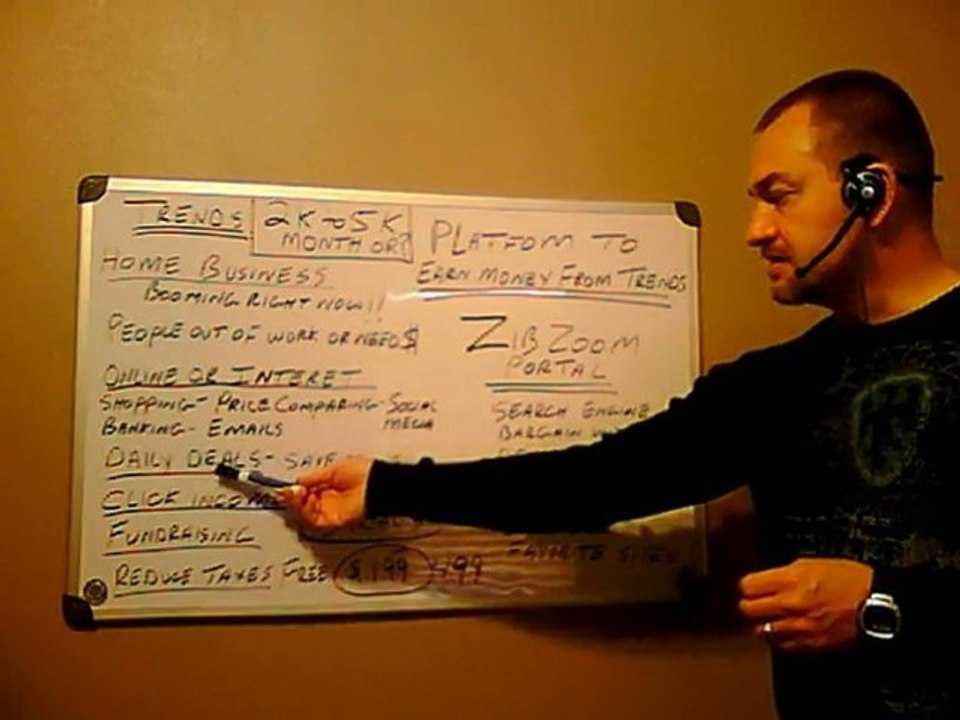 TRENDS
2K to 5K
MONTH OR?
HOME BUSINESS
BOOMING RIGHT NOW!!
PEOPLE OUT OF WORK OR NEED $
ONLINE OR INTERET
SHOPPING - PRICE COMPARING - SOCIAL
MEDIA
BANKING - EMAILS
DAILY DEALS - SAVE
CLICK INCOME
FUNDRAISING
REDUCE TAXES FREE $1.99 499
PLATFOM TO
EARN MONEY FROM TRENDS
ZIBZOOM
PORTAL
SEARCH ENGINE
BARGAIN
FAVORITE SITES